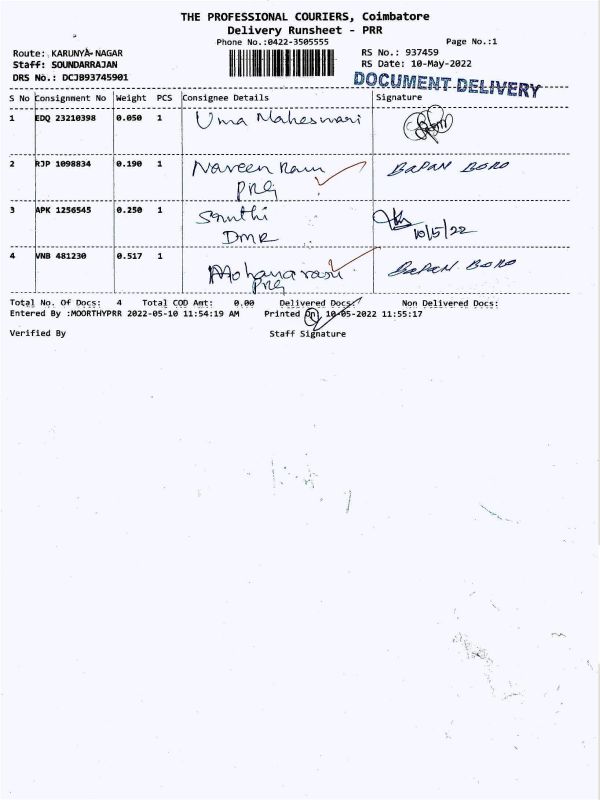 THE PROFESSIONAL COURIERS, Coimbatore
Delivery Runsheet - PRR
Phone No.:0422-3505555 Page No.:1
Route: KARUNYA NAGAR RS No.: 937459
Staff: SOUNDARRAJAN RS Date: 10-May-2022
DRS No.: DCJB93745901
DOCUMENT DELIVERY
S No Consignment No Weight PCS Consignee Details Signature
1 EDQ 23210398 0.050 1 Uma Maheswari
2 RJP 1098834 0.190 1 Naveen Ram BAPAN BORO
PRG
3 APK 1256545 0.250 1
DMR 10/5/22
4 VNB 481230 0.517 1 Mohanarasu BAPAN BORO
PRG
Total No. Of Docs: 4 Total COD Amt: 0.00 Delivered Docs: Non Delivered Docs:
Entered By :MOORTHYPRR 2022-05-10 11:54:19 AM Printed On 10-05-2022 11:55:17
Verified By Staff Signature